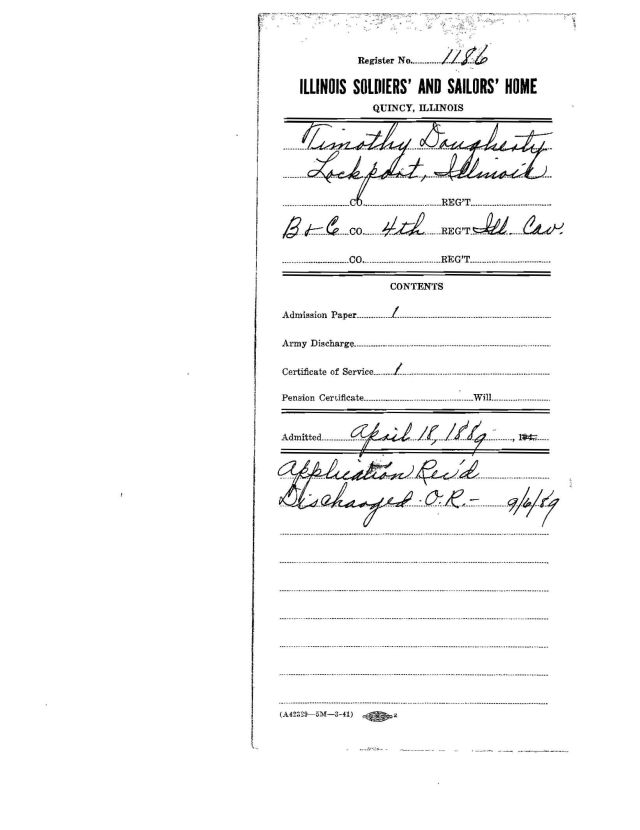 Register No. 1186
ILLINOIS SOLDIERS' AND SAILORS' HOME
QUINCY, ILLINOIS
Timothy Dougherty
Lockport, Illinois
CO. REG'T
B + C CO. 4th REG'T Ill. Cav.
CO. REG'T
CONTENTS
Admission Paper 1
Army Discharge
Certificate of Service 1
Pension Certificate Will
Admitted April 18, 1889, 194
Application Rec'd
Discharged O.R. - 9/6/89
(A42329—5M—3-41) 2